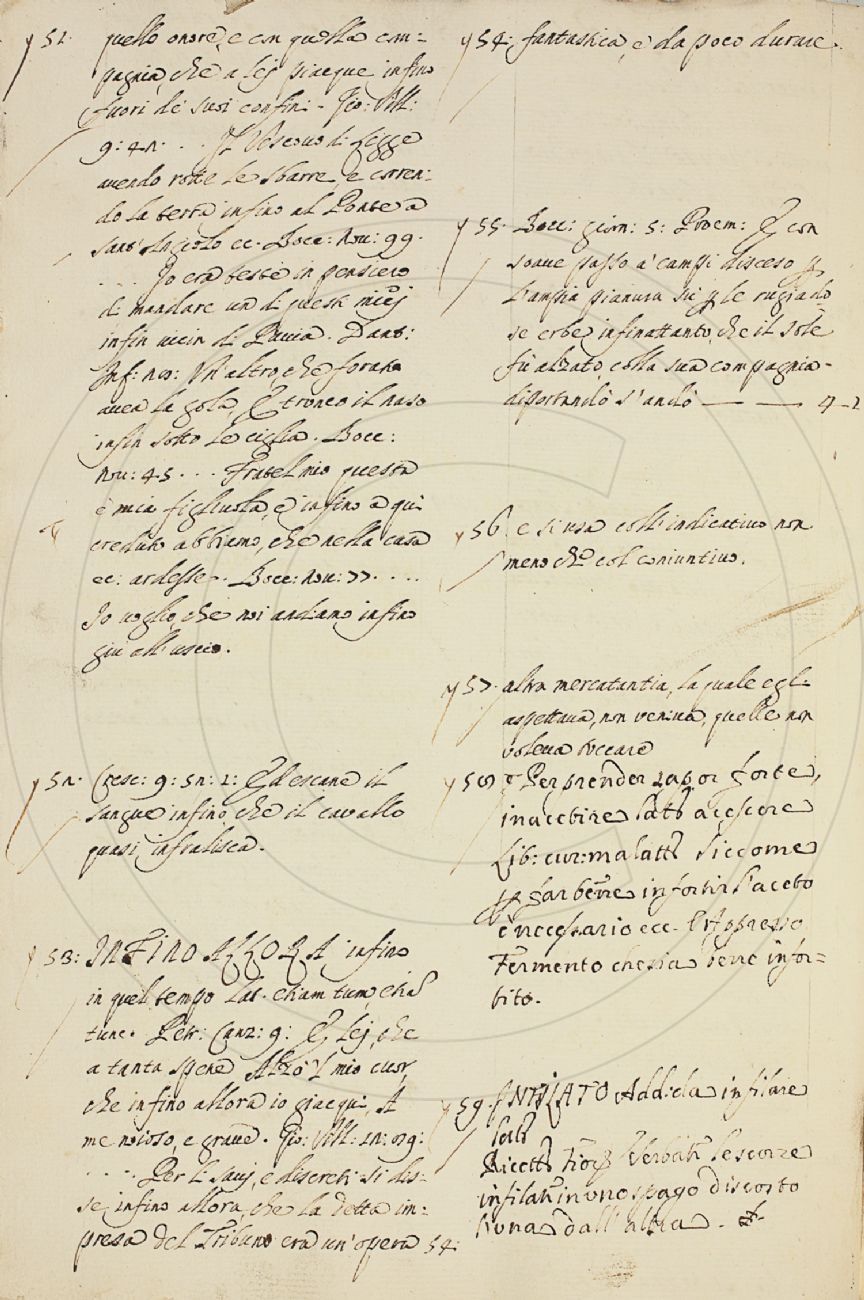 51. quello onore, e con quella com=
pagnia, che a lej piacque, infino
fuori de' suoi confini. Gio: Vill:
9: 42. . . Il Vescovo di Legge
avendo rotte le sbarre, e corren=
do la terra infino al Ponte a
Sant' Agiolo ec. Bocc: Nov: 99.
. . . . Io era testè in pensiero
di mandare un di questi miej
infin vicin di Pavia. Dant:
Inf: Un' altro, che forata
avea la gola, E tronco il naso
infin sotto le ciglia. Bocc:
Nov: 45. . . Fratel mio questa
è mia figliuola, e infino a qui
creduto abbiamo, che nella casa
ec: ardesse. Bocc: Nov: 77. . . .
Io voglio, che noi andiamo infino
giù all' uscio.
52. Cresc: 9: 52: 2: E descane il
sangue infino, che il cavallo
quasi infralisca.
53: INFINO ALLORA infino
in quel tempo Lat. etiam tum, etiã
tunc. Petr: Canz: 9: E lej, che
a tanta spene Alzò 'l mio cuor,
che infino allora io giacqui, A
me noioso, e grave. Gio: Vill: 12:
. . . . Per li savj, e discreti si dis=
se infino allora, che la detta im=
presa del Tribuno era un' opera 54:
54: fantastica, e da poco durare.
55. Bocc: giorn: 5: Proem: E con
soave passo a' campi disceso p
l' ampia pianura su p le rugiado=
se erbe, infinattanto, che il sole
fù alzato, colla sua compagnia
diportando s' andò — — 4-2
56. e si usa coll' indicativo non
meno che col coniuntivo.
57. altra mercatantia, la quale egli
aspettava, non veniva, quelle non
voleva toccare
58 Per prender sapor forte,
inacetire Lat: acescere
Lib: cur: malatt: Siccome
p far bene infortir l' aceto
è necessario ecc. E Appresso
Fermento che sia bene infor=
tito.
59. INFILATO Add: da infilare
Lat:
Ricett: Fior: Verbati le scorze
infilati in uno spago discosto
l' una dall' altra.